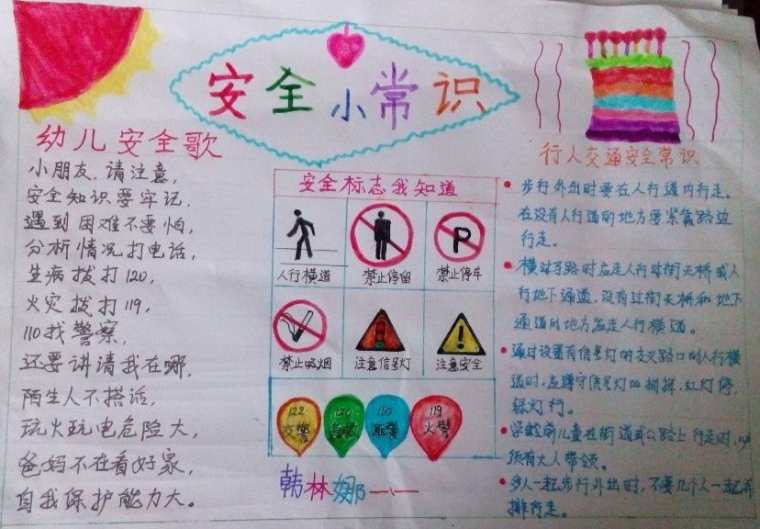 安全小常识
幼儿安全歌
小朋友,请注意,
安全知识要牢记,
遇到困难不要怕,
分析情况打电话,
生病拨打120,
火灾拨打119,
110找警察,
还要讲请我在哪,
陌生人不搭话,
玩火玩电危险大,
爸妈不在看好家,
自我保护能力大。
安全标志我知道
人行横道 禁止停留 禁止停车
P
禁止吸烟 注意信号灯 注意安全
122 120 110 119
交警 急救 匪警 火警
韩林娜
行人交通安全常识
步行外出时要在人行道内行走,
在没有人行道的地方要紧靠路边
行走。
横过马路时应走人行过街天桥或人
行地下通道,没有过街天桥和地下
通道的地方应走人行横道。
通过设置有信号灯的交叉路口的人行横
道时,应遵守信号灯的指挥,红灯停,
绿灯行。
学龄前儿童在街道或公路上行走时,
须有大人带领。
多人一起步行外出时,不要几个人一起并
排行走。